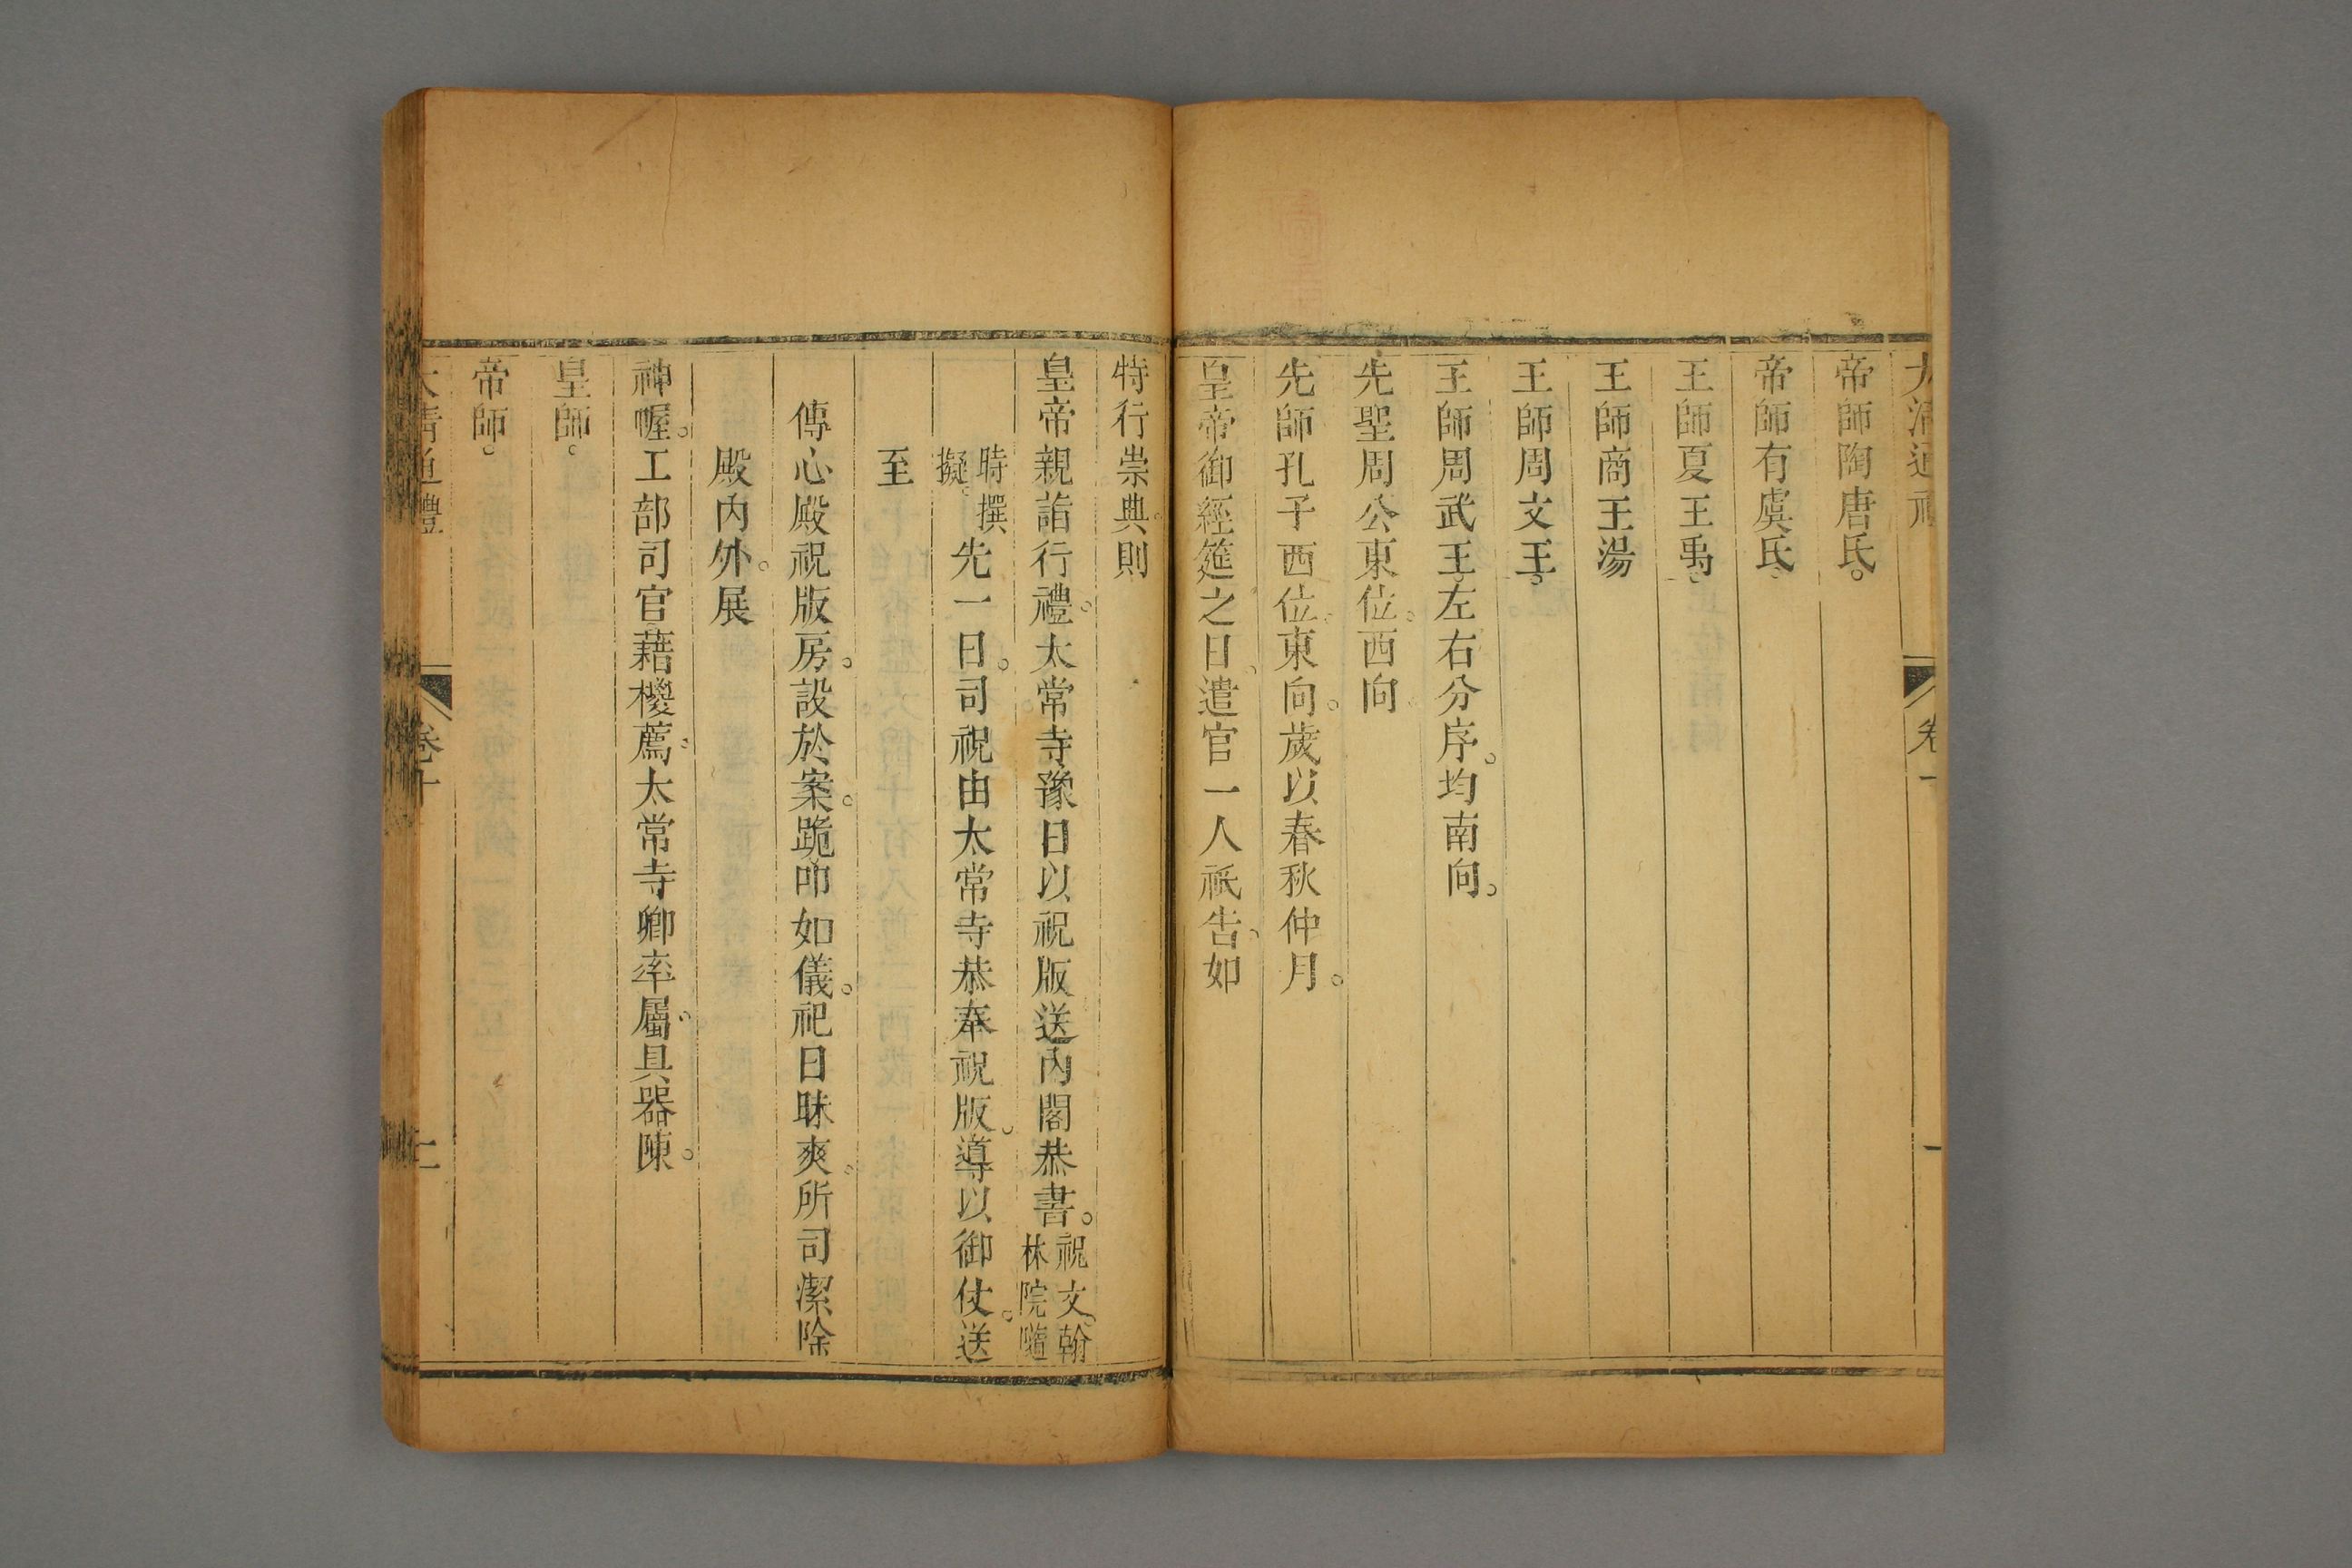 帝師陶唐氏。
帝師有虞氏。
王師夏王禹。
王師商王湯
王師周文王。
王師周武王。左右分序。均南向。
先聖周公東位。西向。
先師孔子西位。東向。歲以春秋仲月。
皇帝御經筵之日。遣官一人祇告。如
特行崇典。則
皇帝親詣行禮。太常寺豫日以祝版送內閣恭書。祝文。翰林院隨
時撰擬。先一日。司祝由太常寺恭奉祝版。導以御仗。送
至
傳心殿祝版房。設於案。跪叩如儀。祀日昧爽。所司潔除
殿內外。展
神幄。工部司官藉㮨薦。太常寺卿率屬。具器陳。
皇師。
帝師。
大清通禮
卷十